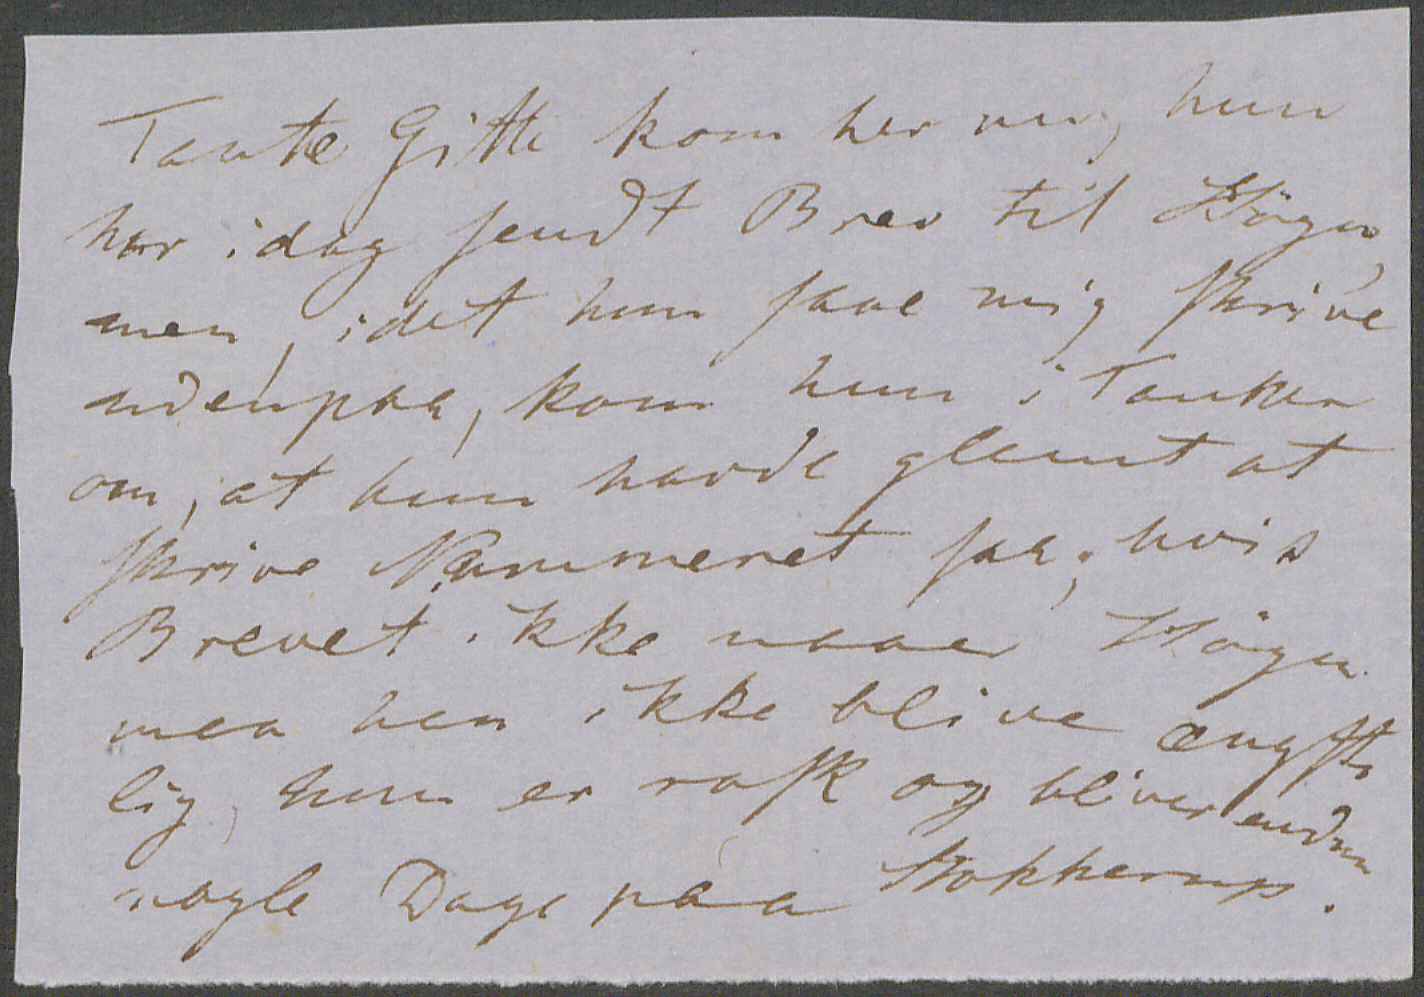 Tante Gitte kom her nu, hun
har idag sendt Brev til Högn,
men, idet hun saae mig skrive
udenpaa, kom hun i Tanker
om, at hun havde glemt at
skrive Nummeret paa; hvis
Brevet ikke naaer Högn
maa han ikke blive ængste
lig, hun er rask og bliver endnu
nogle Dage paa Stokkerup.